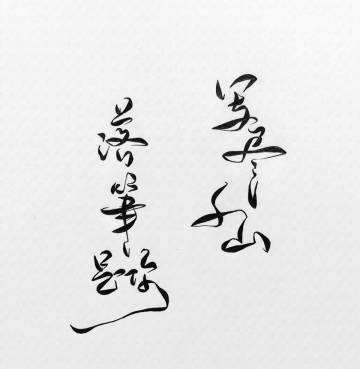 写尽千山
落筆是你